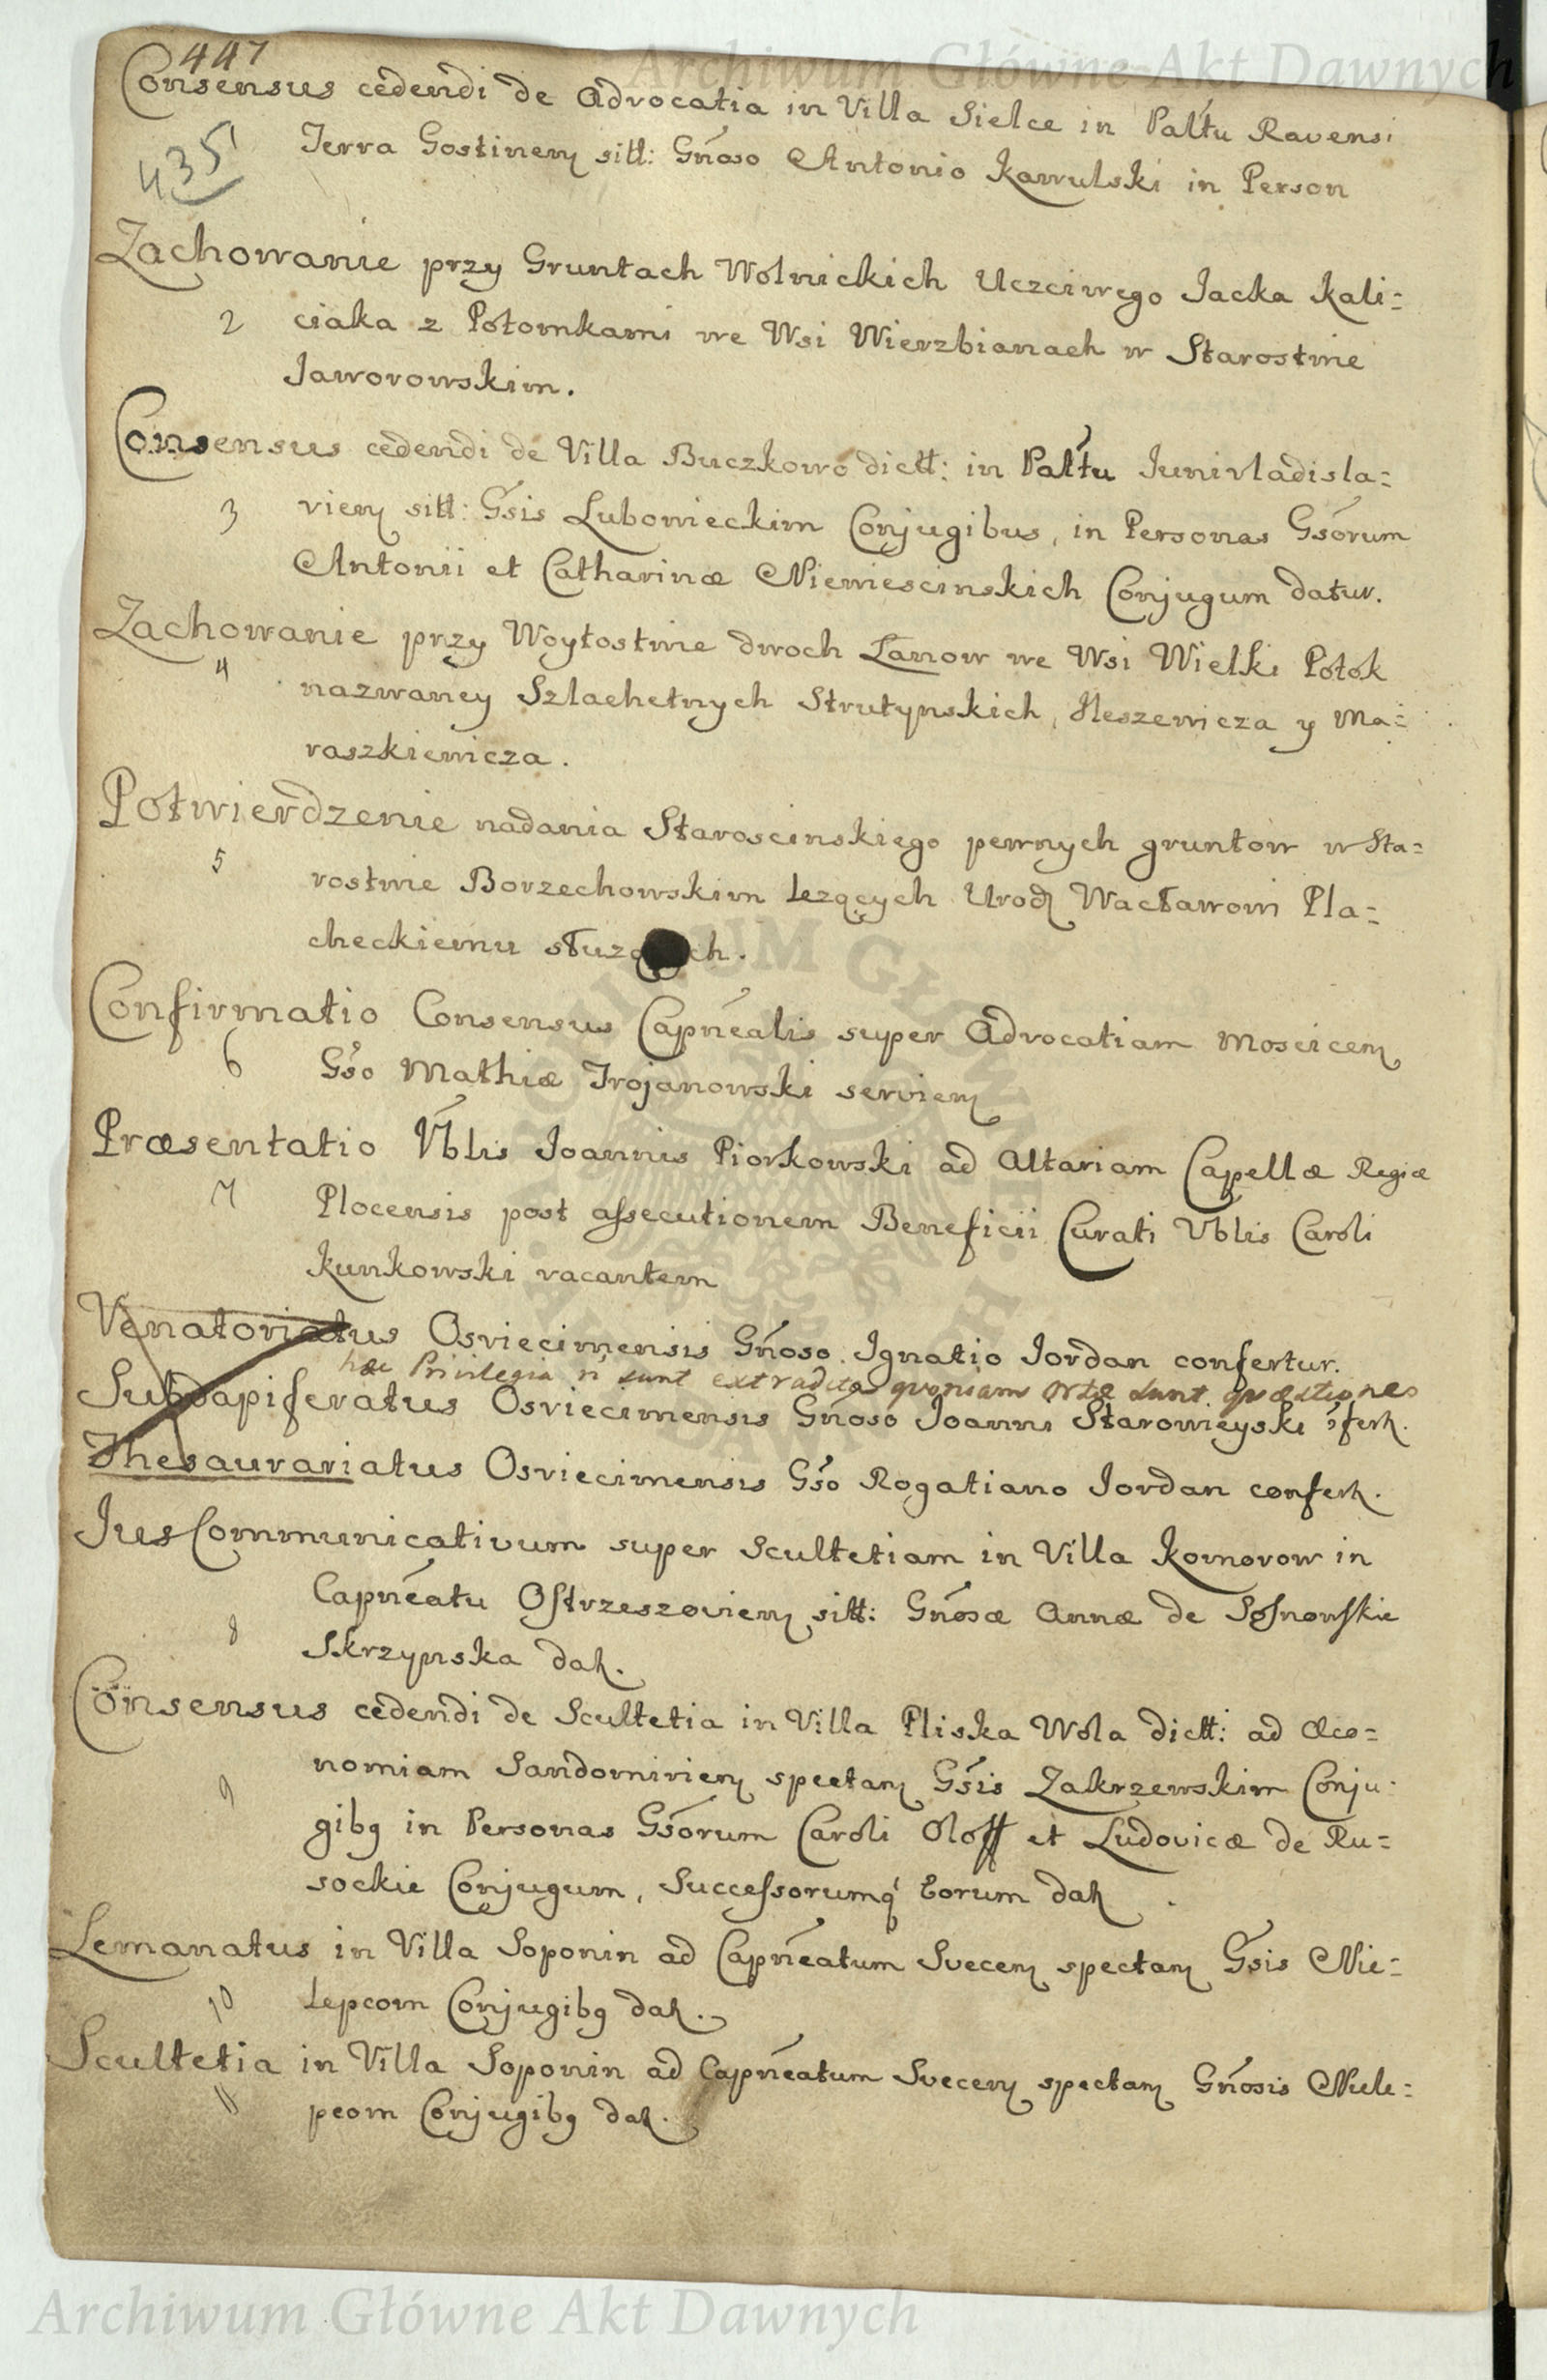 Archiwum Główne Akt Dawnych
447
Consensus cedendi de Advocatia in Villa Sielce in Paltu Ravensi
435
Terra Gostinen sitt: Gnoso Antonio Kawulski in Person
Zachowanie przy Gruntach Wolnickich Uczciwego Jacka Kali=
2 ciaka z Potomkami we Wsi Wierzbianach w Starostwie
Jaworowskim.
Consensus cedendi de Villa Buczkowo dictt: in Paltu Junivladisla=
3 vien sitt: Gsis Lubowieckim Conjugibus, in Personas Gsorum
Antonii et Catharinæ Niewiescinskich Conjugum datur.
Zachowanie przy Woytostwie dwoch Lanow we Wsi Wielki Potok
4 nazwaney Szlachetnych Strutynskich, Heszewicza y Ma=
raszkiewicza.
Potwierdzenie nadania Staroscinskiego pewnych gruntow w Sta=
5 rostwie Borzechowskim lezących Urod Wacławowi Pla=
checkiemu służ ch.
Confirmatio Consensus Capnealis super Advocatiam Moscicen
6 Gso Mathiæ Trojanowski servien
Præsentatio Vblis Joannis Piorkowski ad Altariam Capellæ Regiæ
7 Plocensis post assecutionem Beneficii Curati Vblis Caroli
Kunkowski vacantem
Venatoriatus Osviecimensis Gnoso Ignatio Jordan confertur.
hæc Privilegia n sunt extradita quoniam ortæ sunt quæstiones
Subdapiferatus Osviecimensis Gnoso Joanni Starowieyski ɔfert.
Thesaurariatus Osviecimensis Gso Rogatiano Jordan confert.
Jus Communicativum super Scultetiam in Villa Komorow in
Capneatu Ostrzeszovien sitt: Gnosæ Annæ de Sosnowskie
8 Skrzynska dat.
Consensus cedendi de Scultetia in Villa Pliska Wola dictt: ad Œco=
9 nomiam Sandomirien spectan Gsis Zakrzewskim Conju=
gibq in Personas Gsorum Caroli Oloff et Ludovicæ de Ru=
sockie Conjugum, Successorumq Eorum dat
Lemanatus in Villa Soponin ad Capneatum Svecen spectan Gsis Nie=
10 lepcom Conjugibq dat.
Scultetia in Villa Soponin ad Capneatum Svecen spectan Gnosis Niele=
11 pcom Conjugibq dat.
Archiwum Główne Akt Dawnych